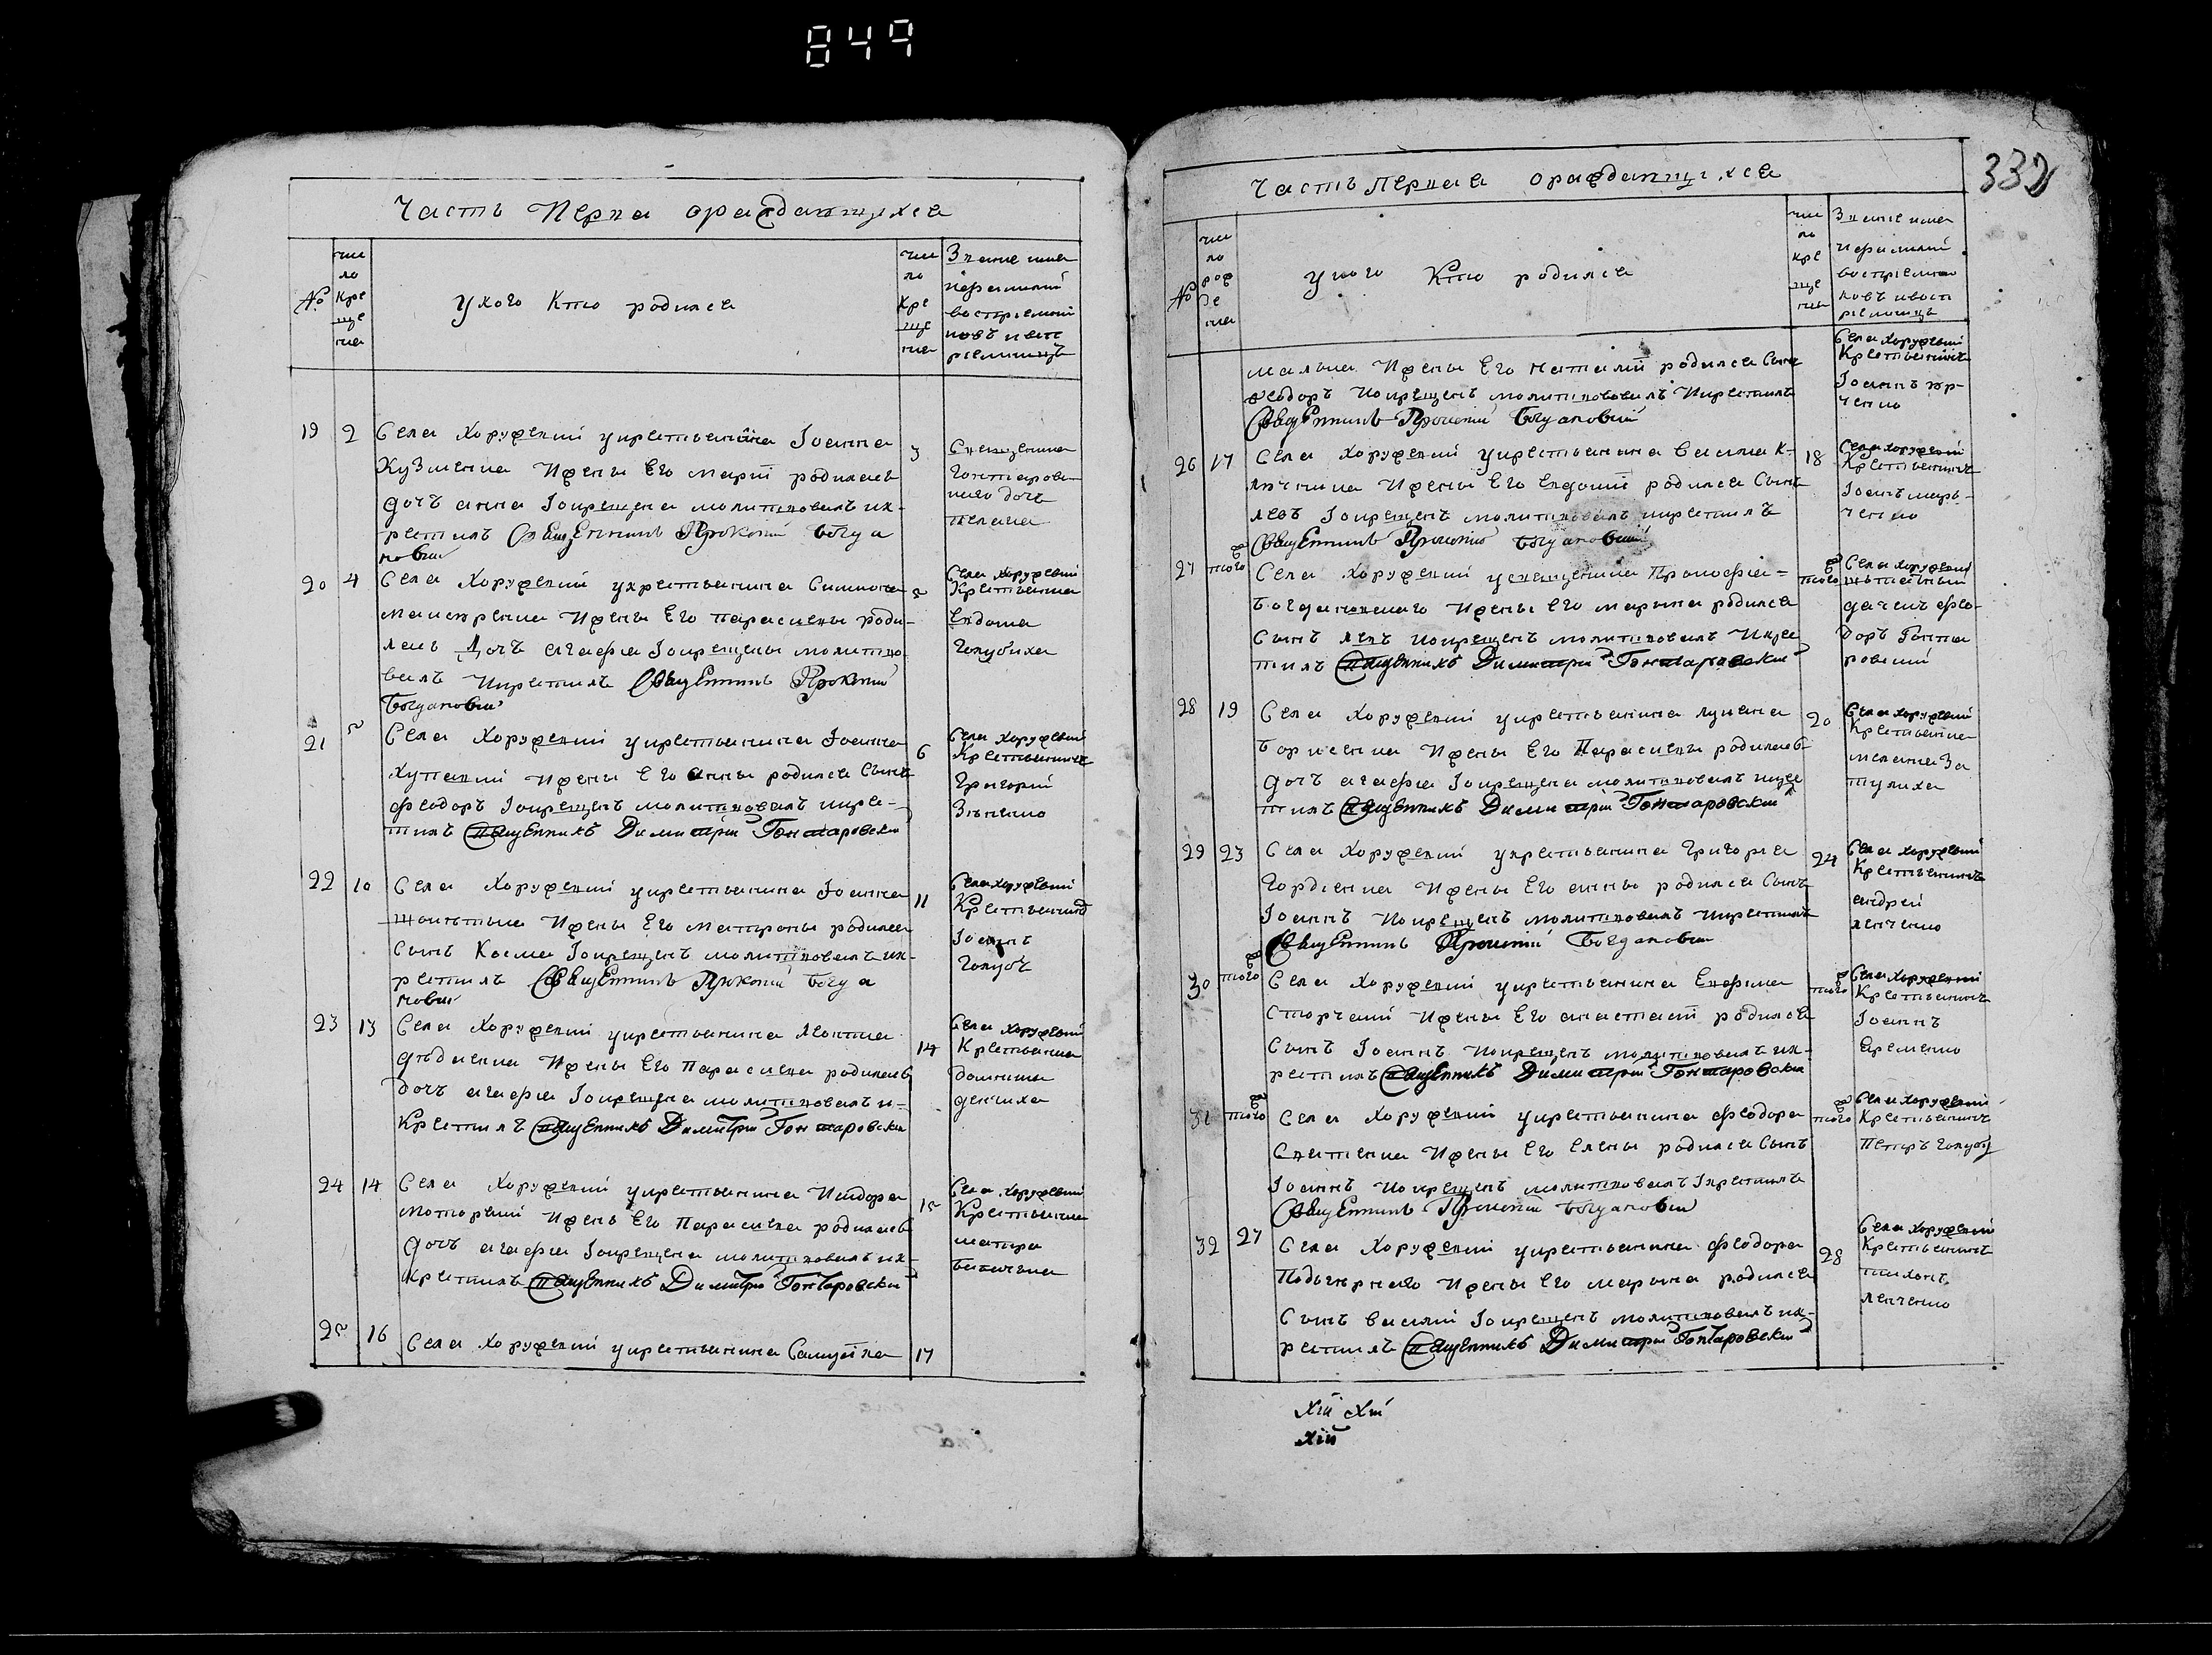 849
332
Часть Перва ораждающихся
№
чис
ло
Кре
ще
ния
У кого Кто родился
чис
ло
Кре
ще
ния
Звание имя
и фамилий
восприемни
ковъ и восп
риемницъ
19 2 Села Хоружевки у крестьянина Іоанна 3
Кузменка И жены Его Марπи родилась
дочь анна Іокрещена молитвовалъ и к-
рестилъ Священникъ Прокопій Богда
новскій
Священника
Гонтаровс
каго дочь
20 4 Села Хоружевки у крестьянина Симиона 5
И жены Его параскевы роди-
лась Дочь агафиа Іокрещена молитво
валъ И крестилъ Священникъ Прокопій
Богдановскій
Села Хоружевки
Крестьянка
Евдокиа
Голубиха
21 5 Села Хоружевки у крестьянина Іоанна 6
И жены Его анны родился Сынъ
феодоръ Іокрещенъ молитвовалъ и кре-
стилъ Священникъ Димитрій Гонтаровскій
Села Хоружевки
Крестьянинъ
Григорий
Зѣнченко
22 10 Села Хоружевки у крестьянина Іоанна 11
И жены Его матроны родился
Сынъ Косма Іокрещенъ молитвовалъ и к-
рестилъ Священникъ Прокопій Богда
новскій
Села Хоружевки
Крестьянинъ
Іоаннъ
Голубъ
23 13 Села Хоружевки у крестьянина леонтиа 14
дѣдиенка И жены Его Параскева родилась
дочь агафиа Іокрещена молитвовалъ и-
Крестилъ Священникъ Димитрій Гонтаровскій
Села Хоружевки
Крестьянка
домникиа
денчиха
24 14 Села Хоружевки у крестьянина Исидора 15
моторний И жень Его Параскева родилась
дочь агафиа Іокрещена молитвовалъ и к-
Крестилъ Священникъ Димитрій Гонтаровскій
Села Хоружевки
Крестьянка
25 16 Села Хоружевки у крестьянина Самуйла 17
Часть Первая ораждающихся
№
чис
ло
рож
де
ния
У кого Кто родился
чис
ло
кре
ще
ния
Звание имя
и фамилий
восприемни
ковъ и восп
риемницъ
И жены Его наталий родился Сынъ
феодоръ Іокрещенъ молитвовалъ И крестилъ
Священникъ Прокопій Богдановскій
Села Хоружевки
Крестьянинъ
Іоаннъ
26 17 Села Хоружевки у крестьянина василиа К- 18
И жены Его Евдокий родился Сынъ
левъ Іокрещенъ молитвовалъ и крестилъ
Священникъ Прокопій Богдановскій
Села Хоружевки
Крестьянинъ
Іоанъ марь-
ченко
27 тогожъ Села Хоружевки у священника Прокофиа- тогожъ
Богдановскаго И жены Его марина родился
Сынъ левъ Іокрещенъ молитвовалъ И кре
стилъ Священникъ Димитрій Гонтаровскій
Села Хоружевки
дачекъ фео-
доръ Гонта
ровский
28 19 Села Хоружевки у крестьянина лукиана 20
борисенка И жены Его Параскевы родилась
дочъ агафиа Іокрещена молитвовалъ и кре
стилъ Священникъ Димитрій Гонтаровскій
Села Хоружевки
Крестьянка
мелания За
тулиха
29 23 Села Хоружевки у крестьянина Григориа 24
Гордиенка И жены Его анны родился Сынъ
Іоаннъ Іокрещенъ молитвовалъ И крестилъ
Священникъ Прокопій Богдановскій
Села Хоружевки
Крестьянинъ
андрей
левченко
30 тогожъ Села Хоружевки у крестьянина Евфима тогожъ
Сторчаий И жены Его анастасій родился
Сынъ Іоаннъ Іокрещенъ молитвовалъ и к-
рестилъ Священникъ Димитрій Гонтаровскій
Села Хоружевки
Крестьянинъ
Іоаннъ
Яременко
31 тогожъ Села Хоружевки у крестьянина феодора тогожъ
И жены Его Елены родился Сынъ
Іоаннъ Іокрещенъ молитвовалъ Ікрестилъ
Священникъ Прокопій Богдановскій
Села Хоружевки
Крестьянинъ
Петръ Голубъ
32 27 Села Хоружевки у крестьянина феодора 28
И жены Его марьина родился
Сынъ василий Іокрещенъ молитвовалъ и к-
рестилъ Священникъ Димитрій Гонтаровскій
Села Хоружевки
Крестьянинъ
тихонъ
левченко